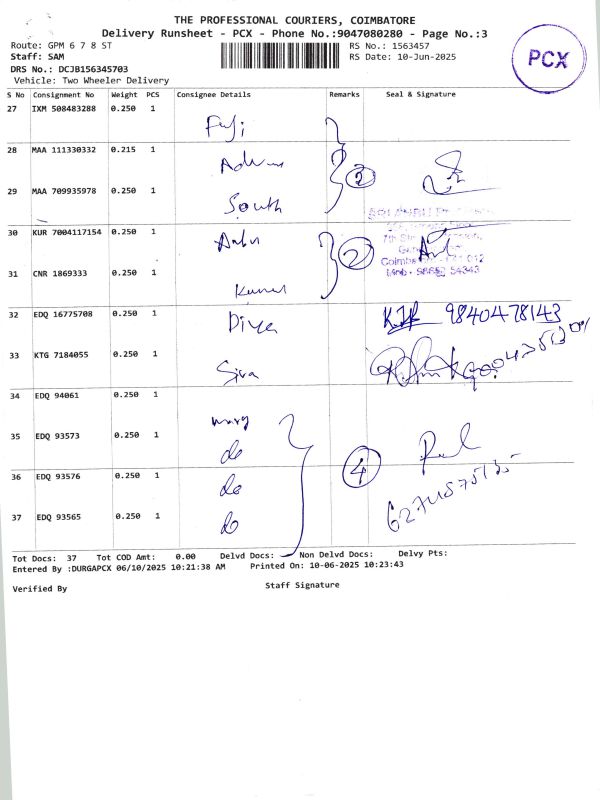 THE PROFESSIONAL COURIERS, COIMBATORE
Delivery Runsheet - PCX - Phone No.:9047080280 - Page No.:3
Route: GPM 6 7 8 ST
RS No.: 1563457
Staff: SAM
RS Date: 10-Jun-2025
DRS No.: DCJB156345703
Vehicle: Two Wheeler Delivery
PCX
S No Consignment No Weight PCS Consignee Details Remarks Seal & Signature
27 IXM 508483288 0.250 1
Fuji
28 MAA 111330332 0.215 1
2
29 MAA 709935978 0.250 1
South
30 KUR 7004117154 0.250 1
2
31 CNR 1869333 0.250 1
32 EDQ 16775708 0.250 1
Divya 9840478143
33 KTG 7184055 0.250 1
Siva
34 EDQ 94061 0.250 1
35 EDQ 93573 0.250 1
do 4
36 EDQ 93576 0.250 1
do
37 EDQ 93565 0.250 1
do
Tot Docs: 37 Tot COD Amt: 0.00 Delvd Docs: Non Delvd Docs: Delvy Pts:
Entered By :DURGAPCX 06/10/2025 10:21:38 AM Printed On: 10-06-2025 10:23:43
Verified By Staff Signature